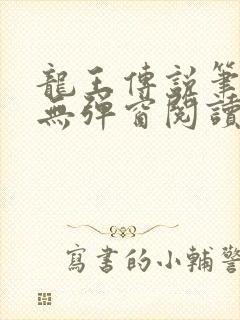 龍王傳說筆
無彈窗閱讀
寫書的小輔警